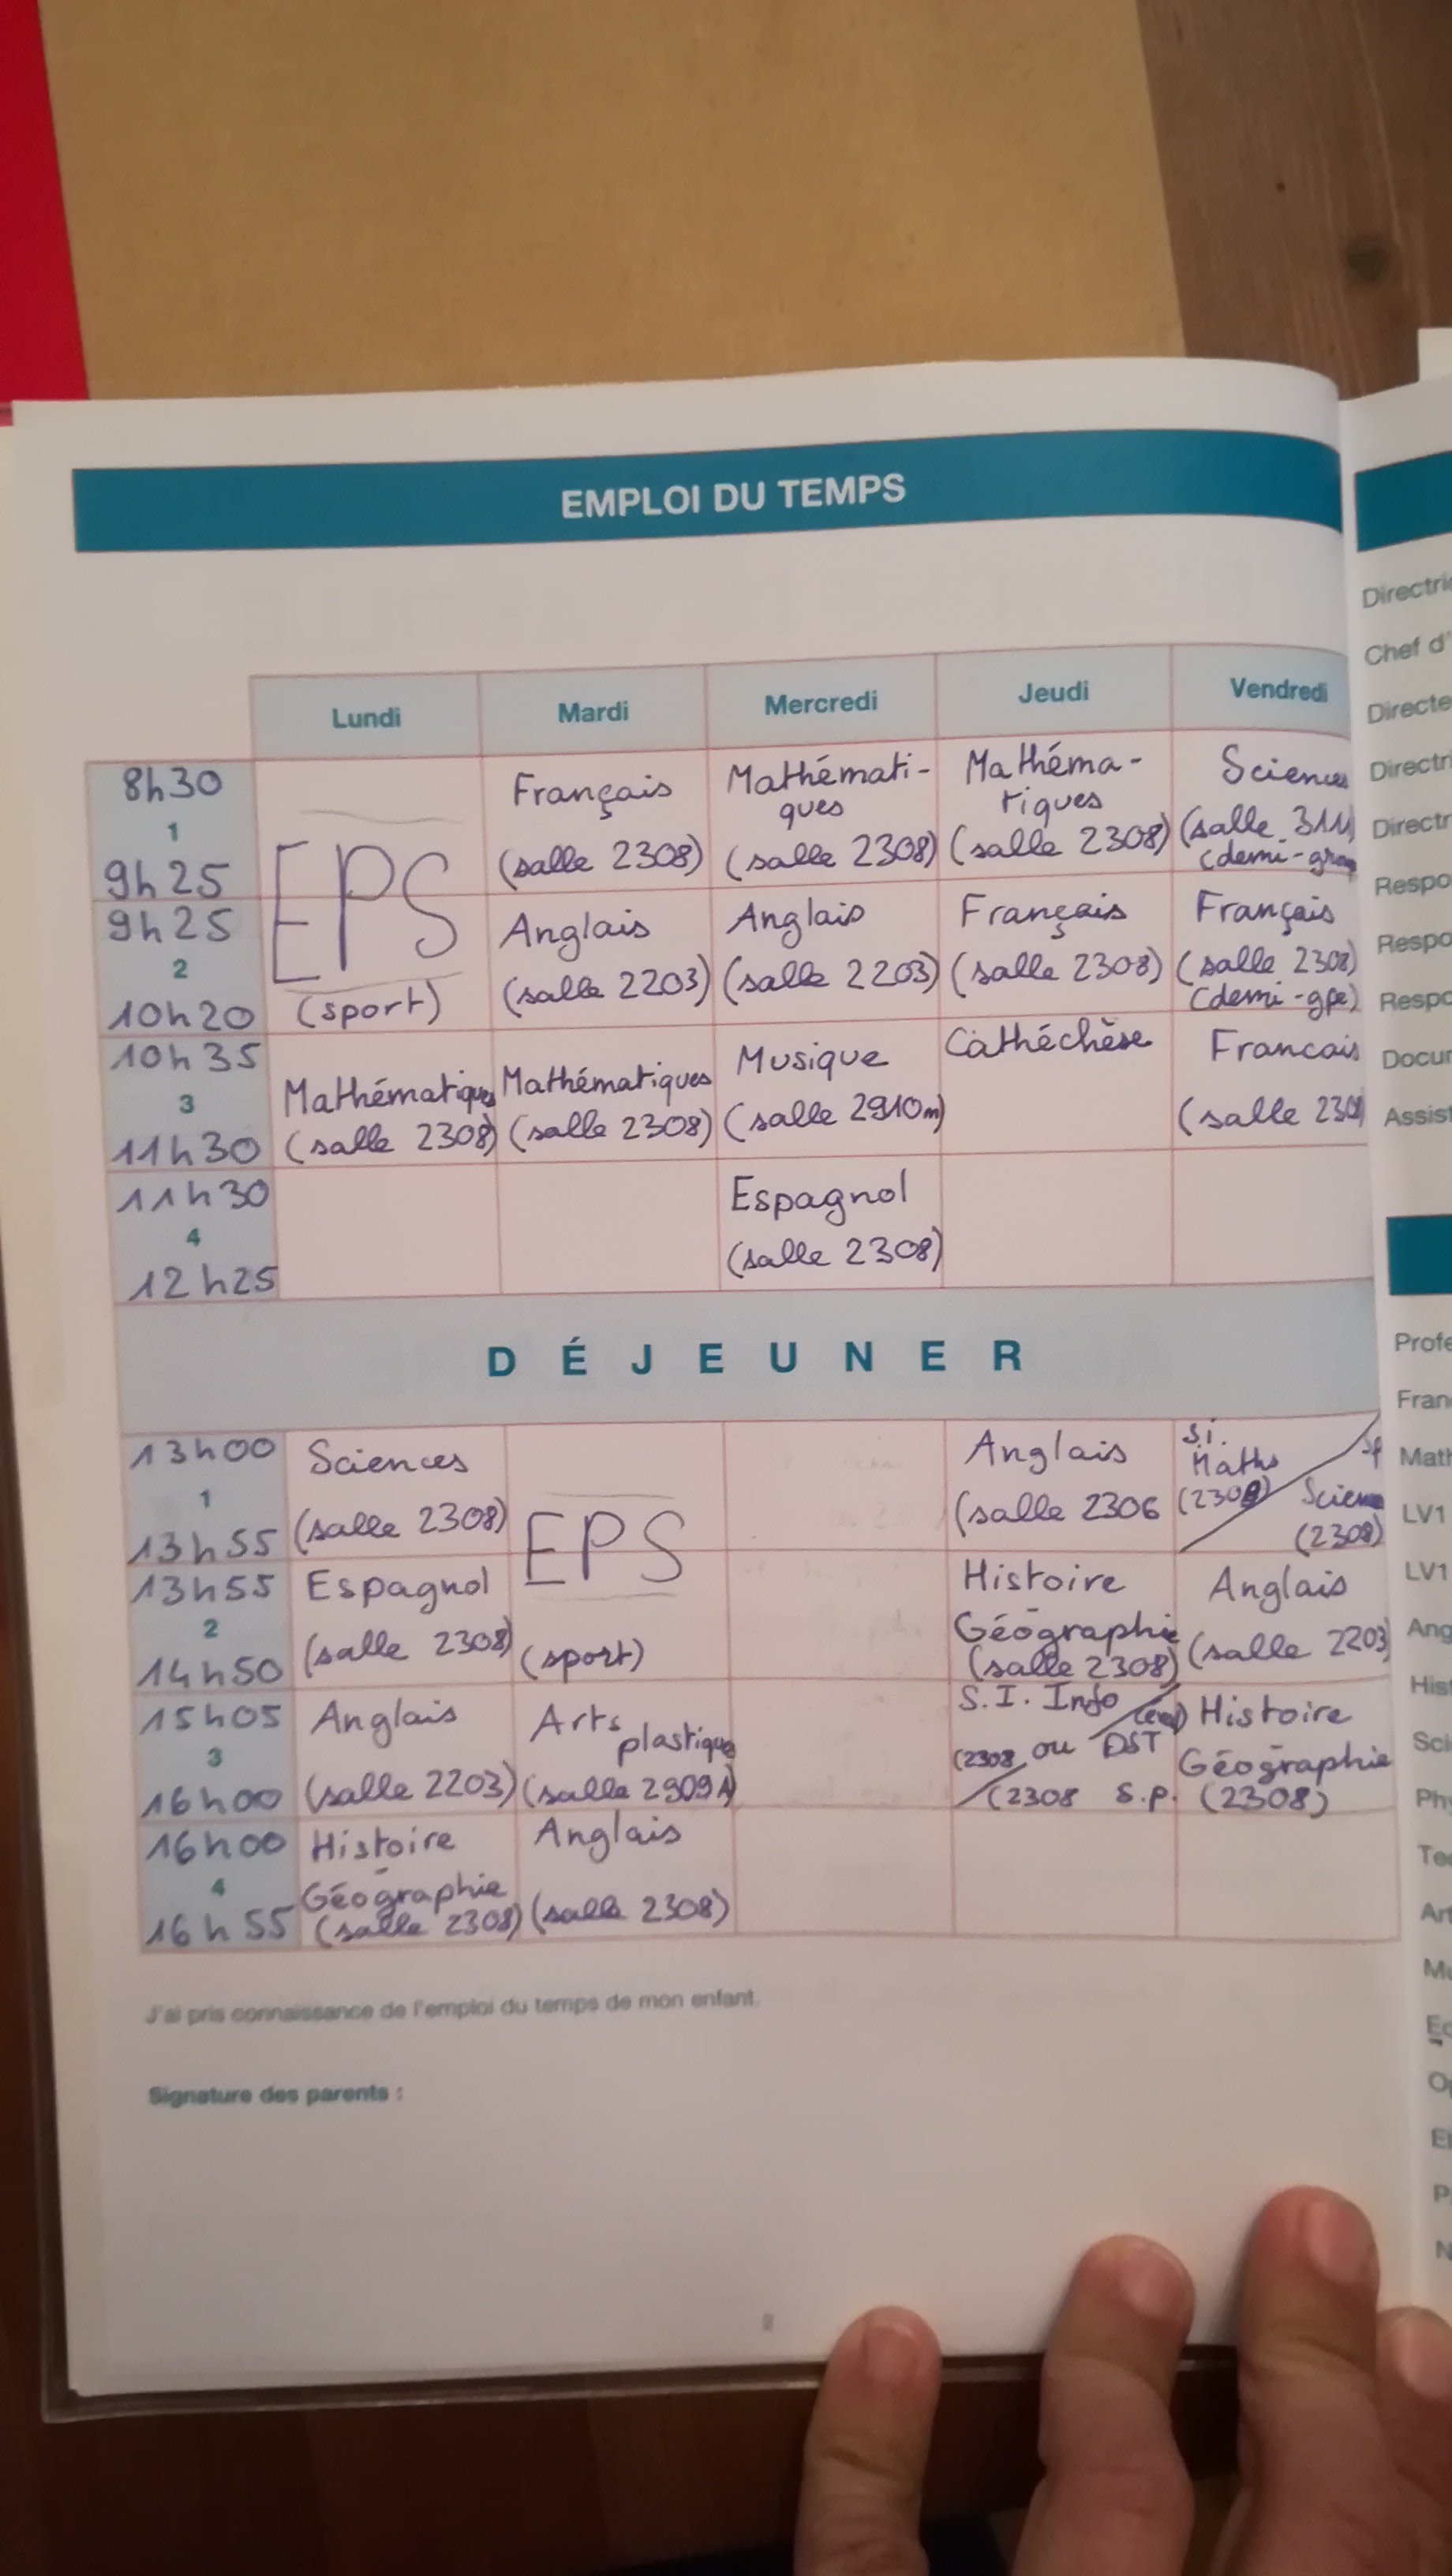 EMPLOI DU TEMPS
Lundi Mardi Mercredi Jeudi Vendredi
8h30
1
9h25
EPS
(sport)
Français
(salle 2308)
Mathémati-
ques
(salle 2308)
Mathéma-
tiques
(salle 2308)
Sciences
(salle 311)
9h25
2
10h20
Anglais
(salle 2203)
Anglais
(salle 2203)
Français
(salle 2308)
Français
(salle 2308)
(demi-gpe)
10h35
3
11h30
Mathématiques
(salle 2308)
Mathématiques
(salle 2308)
Musique
(salle 2910m)
Cathéchèse
Francais
(salle 2308
11h30
4
12h25
Espagnol
(salle 2308)
DÉJEUNER
13h00
1
13h55
Sciences
(salle 2308)
EPS
(sport)
Anglais
(salle 2306
S.I.
Maths
(2308)
Sp
Science
(2308)
13h55
2
14h50
Espagnol
(salle 2308)
Histoire
Géographie
(salle 2308)
Anglais
(salle 2203)
15h05
3
16h00
Anglais
(salle 2203)
Arts
plastiques
(salle 2909A)
S.I. Info
(2308 ou DST
(2308 S.P.
Histoire
Géographie
(2308)
16h00
4
16h55
Histoire
Géographie
(salle 2308)
Anglais
(salle 2308)
J'ai pris connaissance de l'emploi du temps de mon enfant.
Signature des parents :
Directri
Chef d'
Directe
Directri
Directr
Respo
Respo
Respo
Docur
Assist
Profe
Fran
Math
LV1
LV1
Ang
Hist
Sci
Phy
Te
Art
Mu